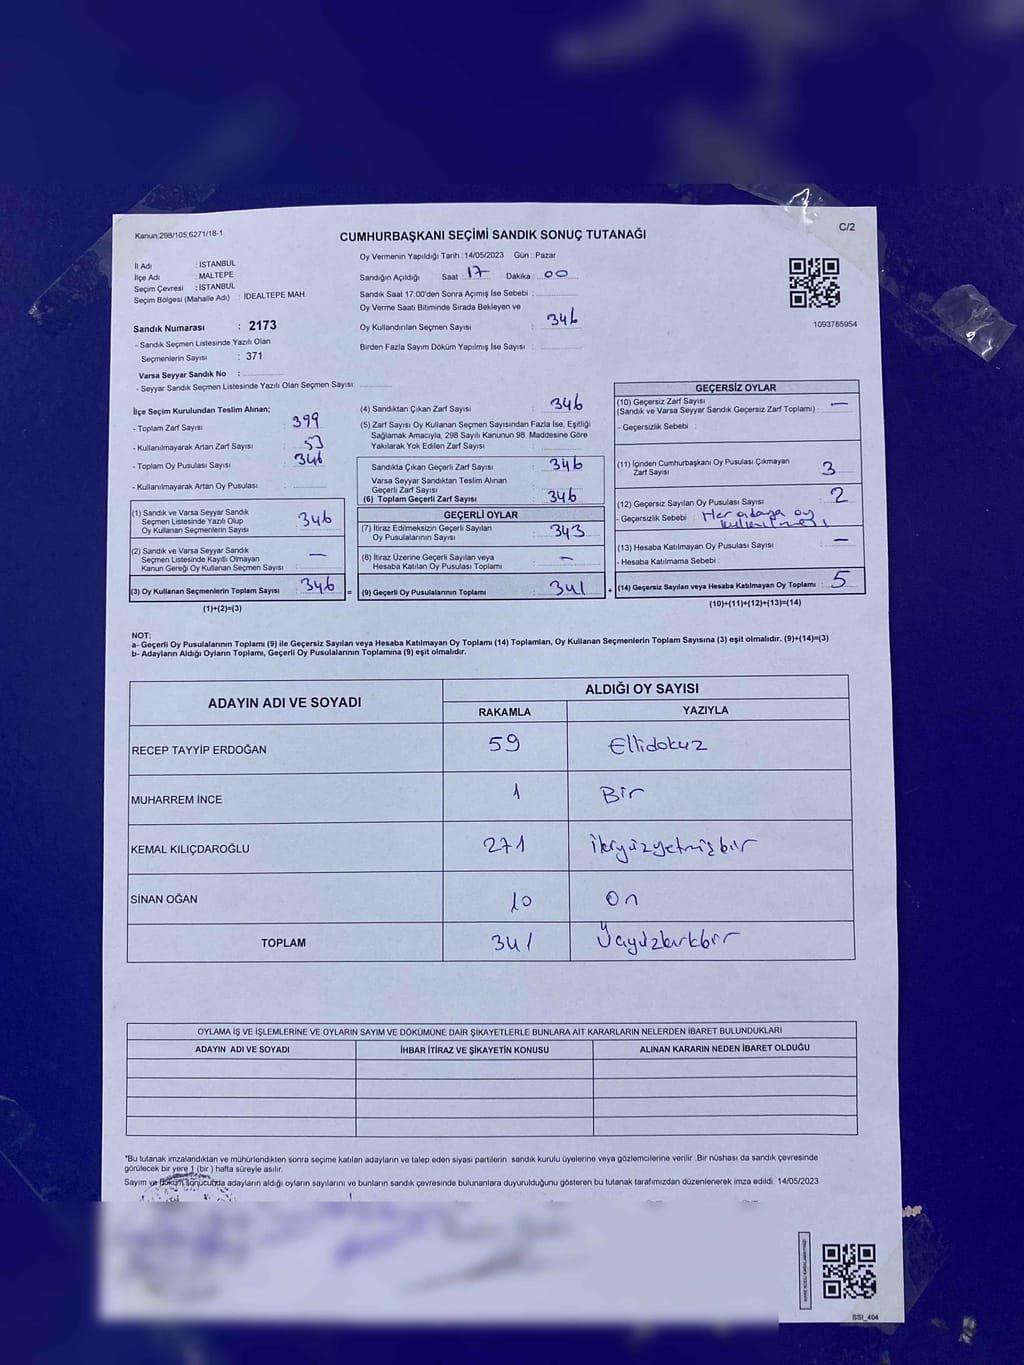 Kanun:298/105,6271/18-1
CUMHURBAŞKANI SEÇİMİ SANDIK SONUÇ TUTANAĞI
C/2
İl Adı : İSTANBUL
İlçe Adı : MALTEPE
Seçim Çevresi : İSTANBUL
Seçim Bölgesi (Mahalle Adı) : IDEALTEPE MAH.
Sandık Numarası : 2173
- Sandık Seçmen Listesinde Yazılı Olan
Seçmenlerin Sayısı : 371
Varsa Seyyar Sandık No :
- Seyyar Sandık Seçmen Listesinde Yazılı Olan Seçmen Sayısı:
Oy Vermenin Yapıldığı Tarih :14/05/2023 Gün : Pazar
Sandığın Açıldığı Saat 17 Dakika : 00
Sandık Saat 17:00'den Sonra Açımış İse Sebebi :
Oy Verme Saati Bitiminde Sırada Bekleyen ve
Oy Kullandırılan Seçmen Sayısı : 346
Birden Fazla Sayım Döküm Yapılmış İse Sayısı :
1093765954
İlçe Seçim Kurulundan Teslim Alınan;
- Toplam Zarf Sayısı : 399
- Kullanılmayarak Artan Zarf Sayısı : 53
- Toplam Oy Pusulası Sayısı : 346
- Kullanılmayarak Artan Oy Pusulası :
(1) Sandık ve Varsa Seyyar Sandık
Seçmen Listesinde Yazılı Olup
Oy Kullanan Seçmenlerin Sayısı : 346
(2) Sandık ve Varsa Seyyar Sandık
Seçmen Listesinde Kayıtlı Olmayan
Kanun Gereği Oy Kullanan Seçmen Sayısı : —
(3) Oy Kullanan Seçmenlerin Toplam Sayısı : 346 =
(1)+(2)=(3)
(4) Sandıktan Çıkan Zarf Sayısı : 346
(5) Zarf Sayısı Oy Kullanan Seçmen Sayısından Fazla İse, Eşitliği
Sağlamak Amacıyla, 298 Sayılı Kanunun 98. Maddesine Göre
Yakılarak Yok Edilen Zarf Sayısı :
Sandıkta Çıkan Geçerli Zarf Sayısı : 346
Varsa Seyyar Sandıktan Teslim Alınan
Geçerli Zarf Sayısı :
(6) Toplam Geçerli Zarf Sayısı : 346
GEÇERLİ OYLAR
(7) İtiraz Edilmeksizin Geçerli Sayılan
Oy Pusulalarının Sayısı : 343
(8) İtiraz Üzerine Geçerli Sayılan veya
Hesaba Katılan Oy Pusulası Toplamı : —
(9) Geçerli Oy Pusulalarının Toplamı : 341 +
GEÇERSİZ OYLAR
(10) Geçersiz Zarf Sayısı
(Sandık ve Varsa Seyyar Sandık Geçersiz Zarf Toplamı) : —
- Geçersizlik Sebebi :
(11) İçinden Cumhurbaşkanı Oy Pusulası Çıkmayan
Zarf Sayısı : 3
(12) Geçersiz Sayılan Oy Pusulası Sayısı : 2
- Geçersizlik Sebebi : Her adaya oy
(13) Hesaba Katılmayan Oy Pusulası Sayısı : —
- Hesaba Katılmama Sebebi :
(14) Geçersiz Sayılan veya Hesaba Katılmayan Oy Toplamı : 5
(10)+(11)+(12)+(13)=(14)
NOT:
a- Geçerli Oy Pusulalarının Toplamı (9) ile Geçersiz Sayılan veya Hesaba Katılmayan Oy Toplamı (14) Toplamları, Oy Kullanan Seçmenlerin Toplam Sayısına (3) eşit olmalıdır. (9)+(14)=(3)
b- Adayların Aldığı Oyların Toplamı, Geçerli Oy Pusulalarının Toplamına (9) eşit olmalıdır.
ADAYIN ADI VE SOYADI
ALDIĞI OY SAYISI
RAKAMLA YAZIYLA
RECEP TAYYİP ERDOĞAN 59 Ellidokuz
MUHARREM İNCE 1 Bir
KEMAL KILIÇDAROĞLU 271 ikiyüzyetmişbir
SİNAN OĞAN 10 On
TOPLAM 341 Üçyüzkırkbir
OYLAMA İŞ VE İŞLEMLERİNE VE OYLARIN SAYIM VE DÖKÜMÜNE DAİR ŞİKAYETLERLE BUNLARA AİT KARARLARIN NELERDEN İBARET BULUNDUKLARI
ADAYIN ADI VE SOYADI İHBAR İTİRAZ VE ŞİKAYETİN KONUSU ALINAN KARARIN NEDEN İBARET OLDUĞU
*Bu tutanak imzalandıktan ve mühürlendikten sonra seçime katılan adayların ve talep eden siyasi partilerin sandık kurulu üyelerine veya gözlemcilerine verilir. Bir nüshası da sandık çevresinde
görülecek bir yere 1 (bir) hafta süreyle asılır.
Sayım ve döküm sonucunda adayların aldığı oyların sayılarını ve bunların sandık çevresinde bulunanlara duyurulduğunu gösteren bu tutanak tarafımızdan düzenlenerek imza edildi. 14/05/2023
SSI_404